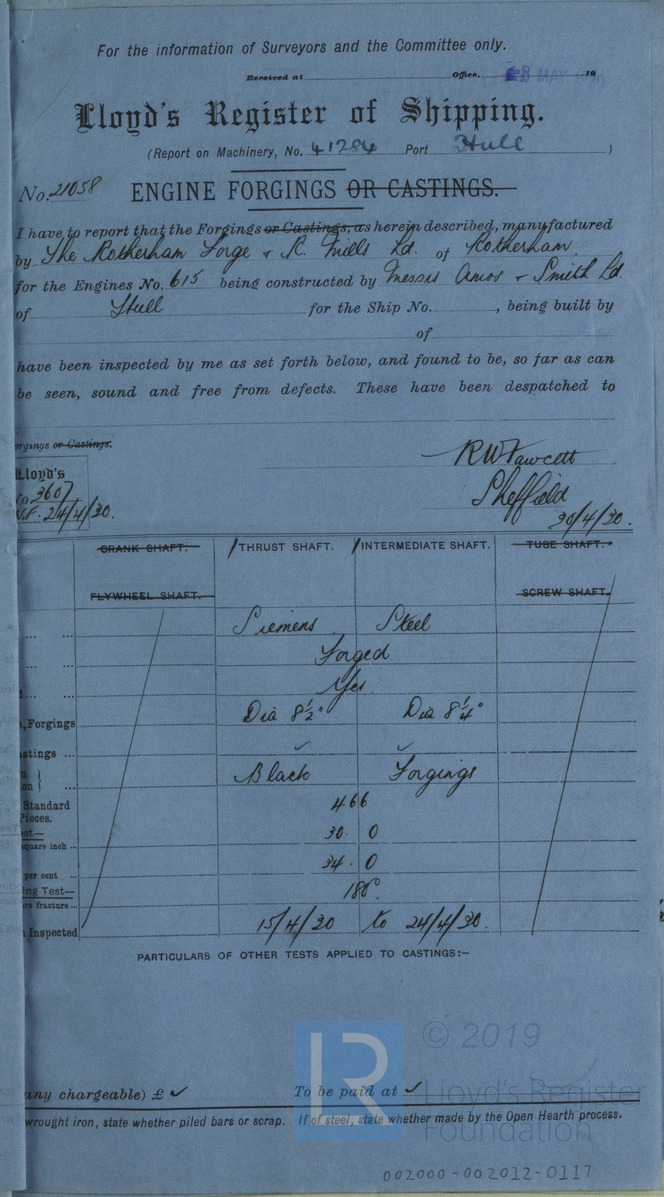 For the information of Surveyors and the Committee only.
Received at Office, 8 MAY 19
Lloyd's Register of Shipping.
(Report on Machinery, No. 41284 Port Hull )
No. 21058 ENGINE FORGINGS OR CASTINGS.
I have to report that the Forgings or Castings, as herein described, manufactured
by The Rotherham Forge & R. Mills Ld. of Rotherham
for the Engines No. 615 being constructed by Messrs Amos & Smith Ld.
of Hull for the Ship No. , being built by
of
have been inspected by me as set forth below, and found to be, so far as can
be seen, sound and free from defects. These have been despatched to
orgings or Castings.
Lloyd's
No 3607
W.F. 24/4/30.
RW Fawcett
Sheffield
30/4/30.
CRANK SHAFT. THRUST SHAFT. INTERMEDIATE SHAFT. TUBE SHAFT.
FLYWHEEL SHAFT. SCREW SHAFT.
Siemens Steel
Forged
Yes
, Forgings Dia 8½" Dia 8¼"
astings ✓ ✓
on } Black Forgings
Standard Pieces. 466
est—
square inch 30.0
per cent 34.0
ing Test—
re fracture 180°.
Inspected 15/4/30 to 24/4/30.
PARTICULARS OF OTHER TESTS APPLIED TO CASTINGS:—
© 2019
LR
Lloyd's Register
Foundation
any chargeable) £ ✓ To be paid at ✓
wrought iron, state whether piled bars or scrap. If of steel, state whether made by the Open Hearth process.
002000-002012-0117